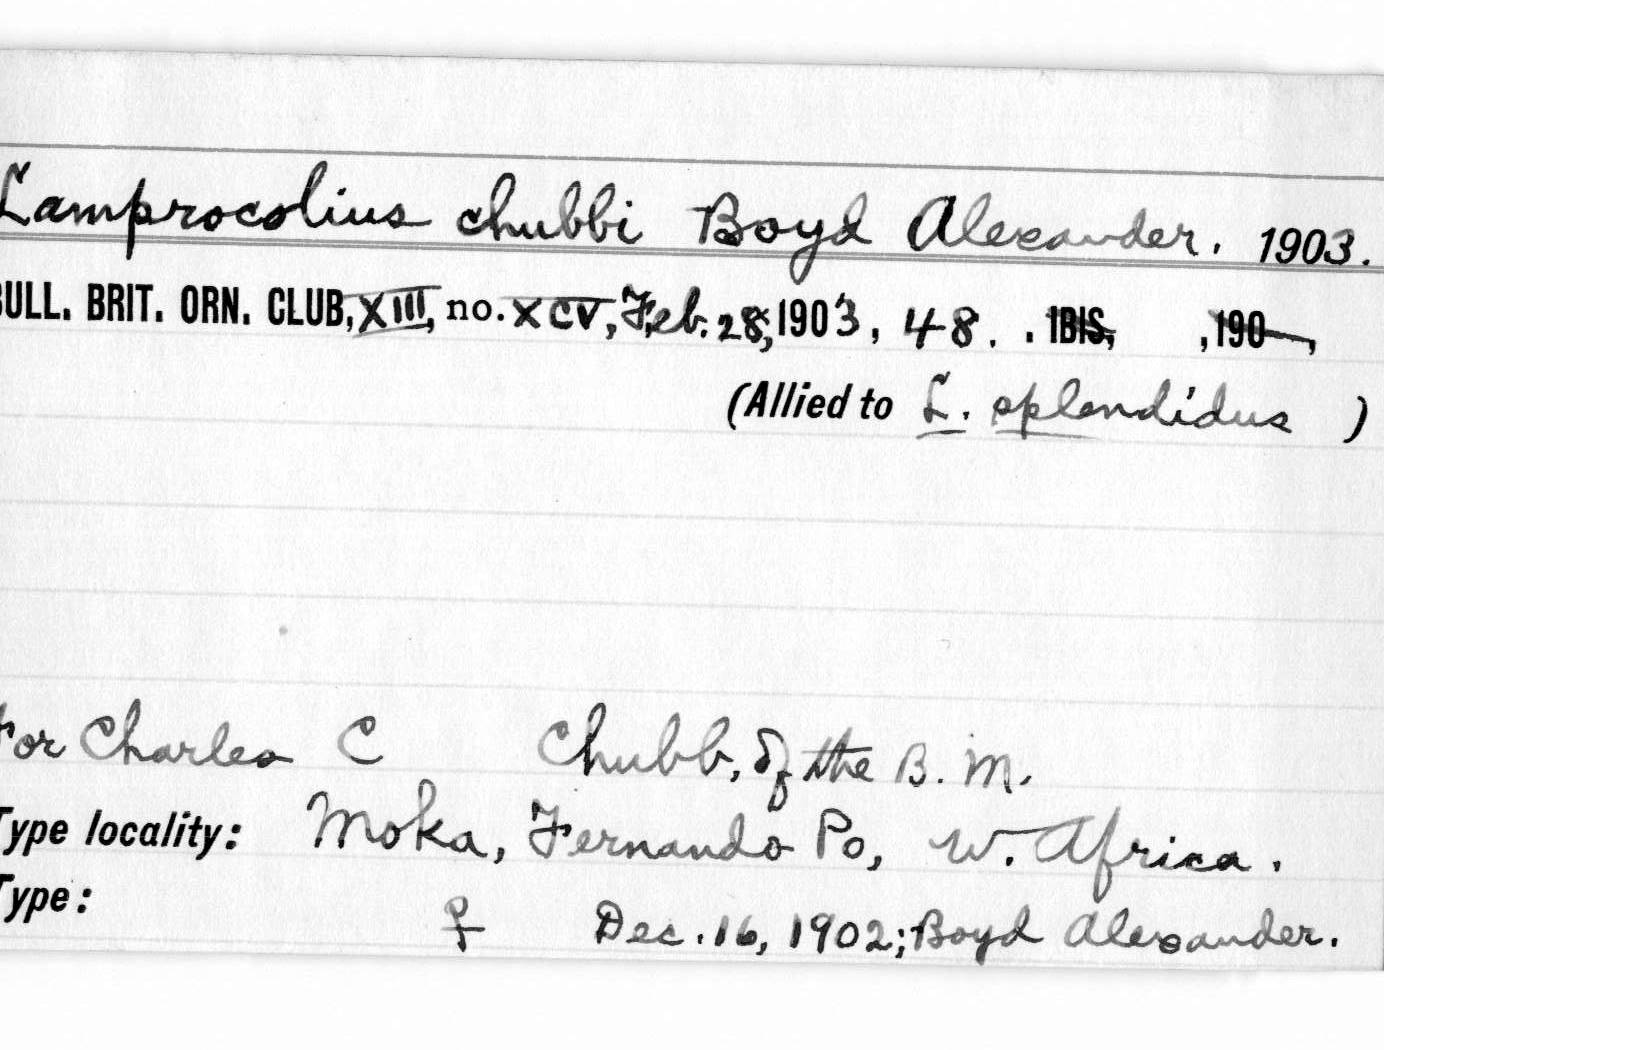 Lamprocolius chubbi Boyd Alexander. 1903.
BULL. BRIT. ORN. CLUB, XIII, no. XCV, Feb. 28, 1903, 48. . IBIS, ,190 ,
(Allied to L. splendidus )
For Charles C Chubb, of the B. M.
Type locality: Moka, Fernando Po, W. Africa.
Type:
♀ Dec. 16, 1902; Boyd Alexander.